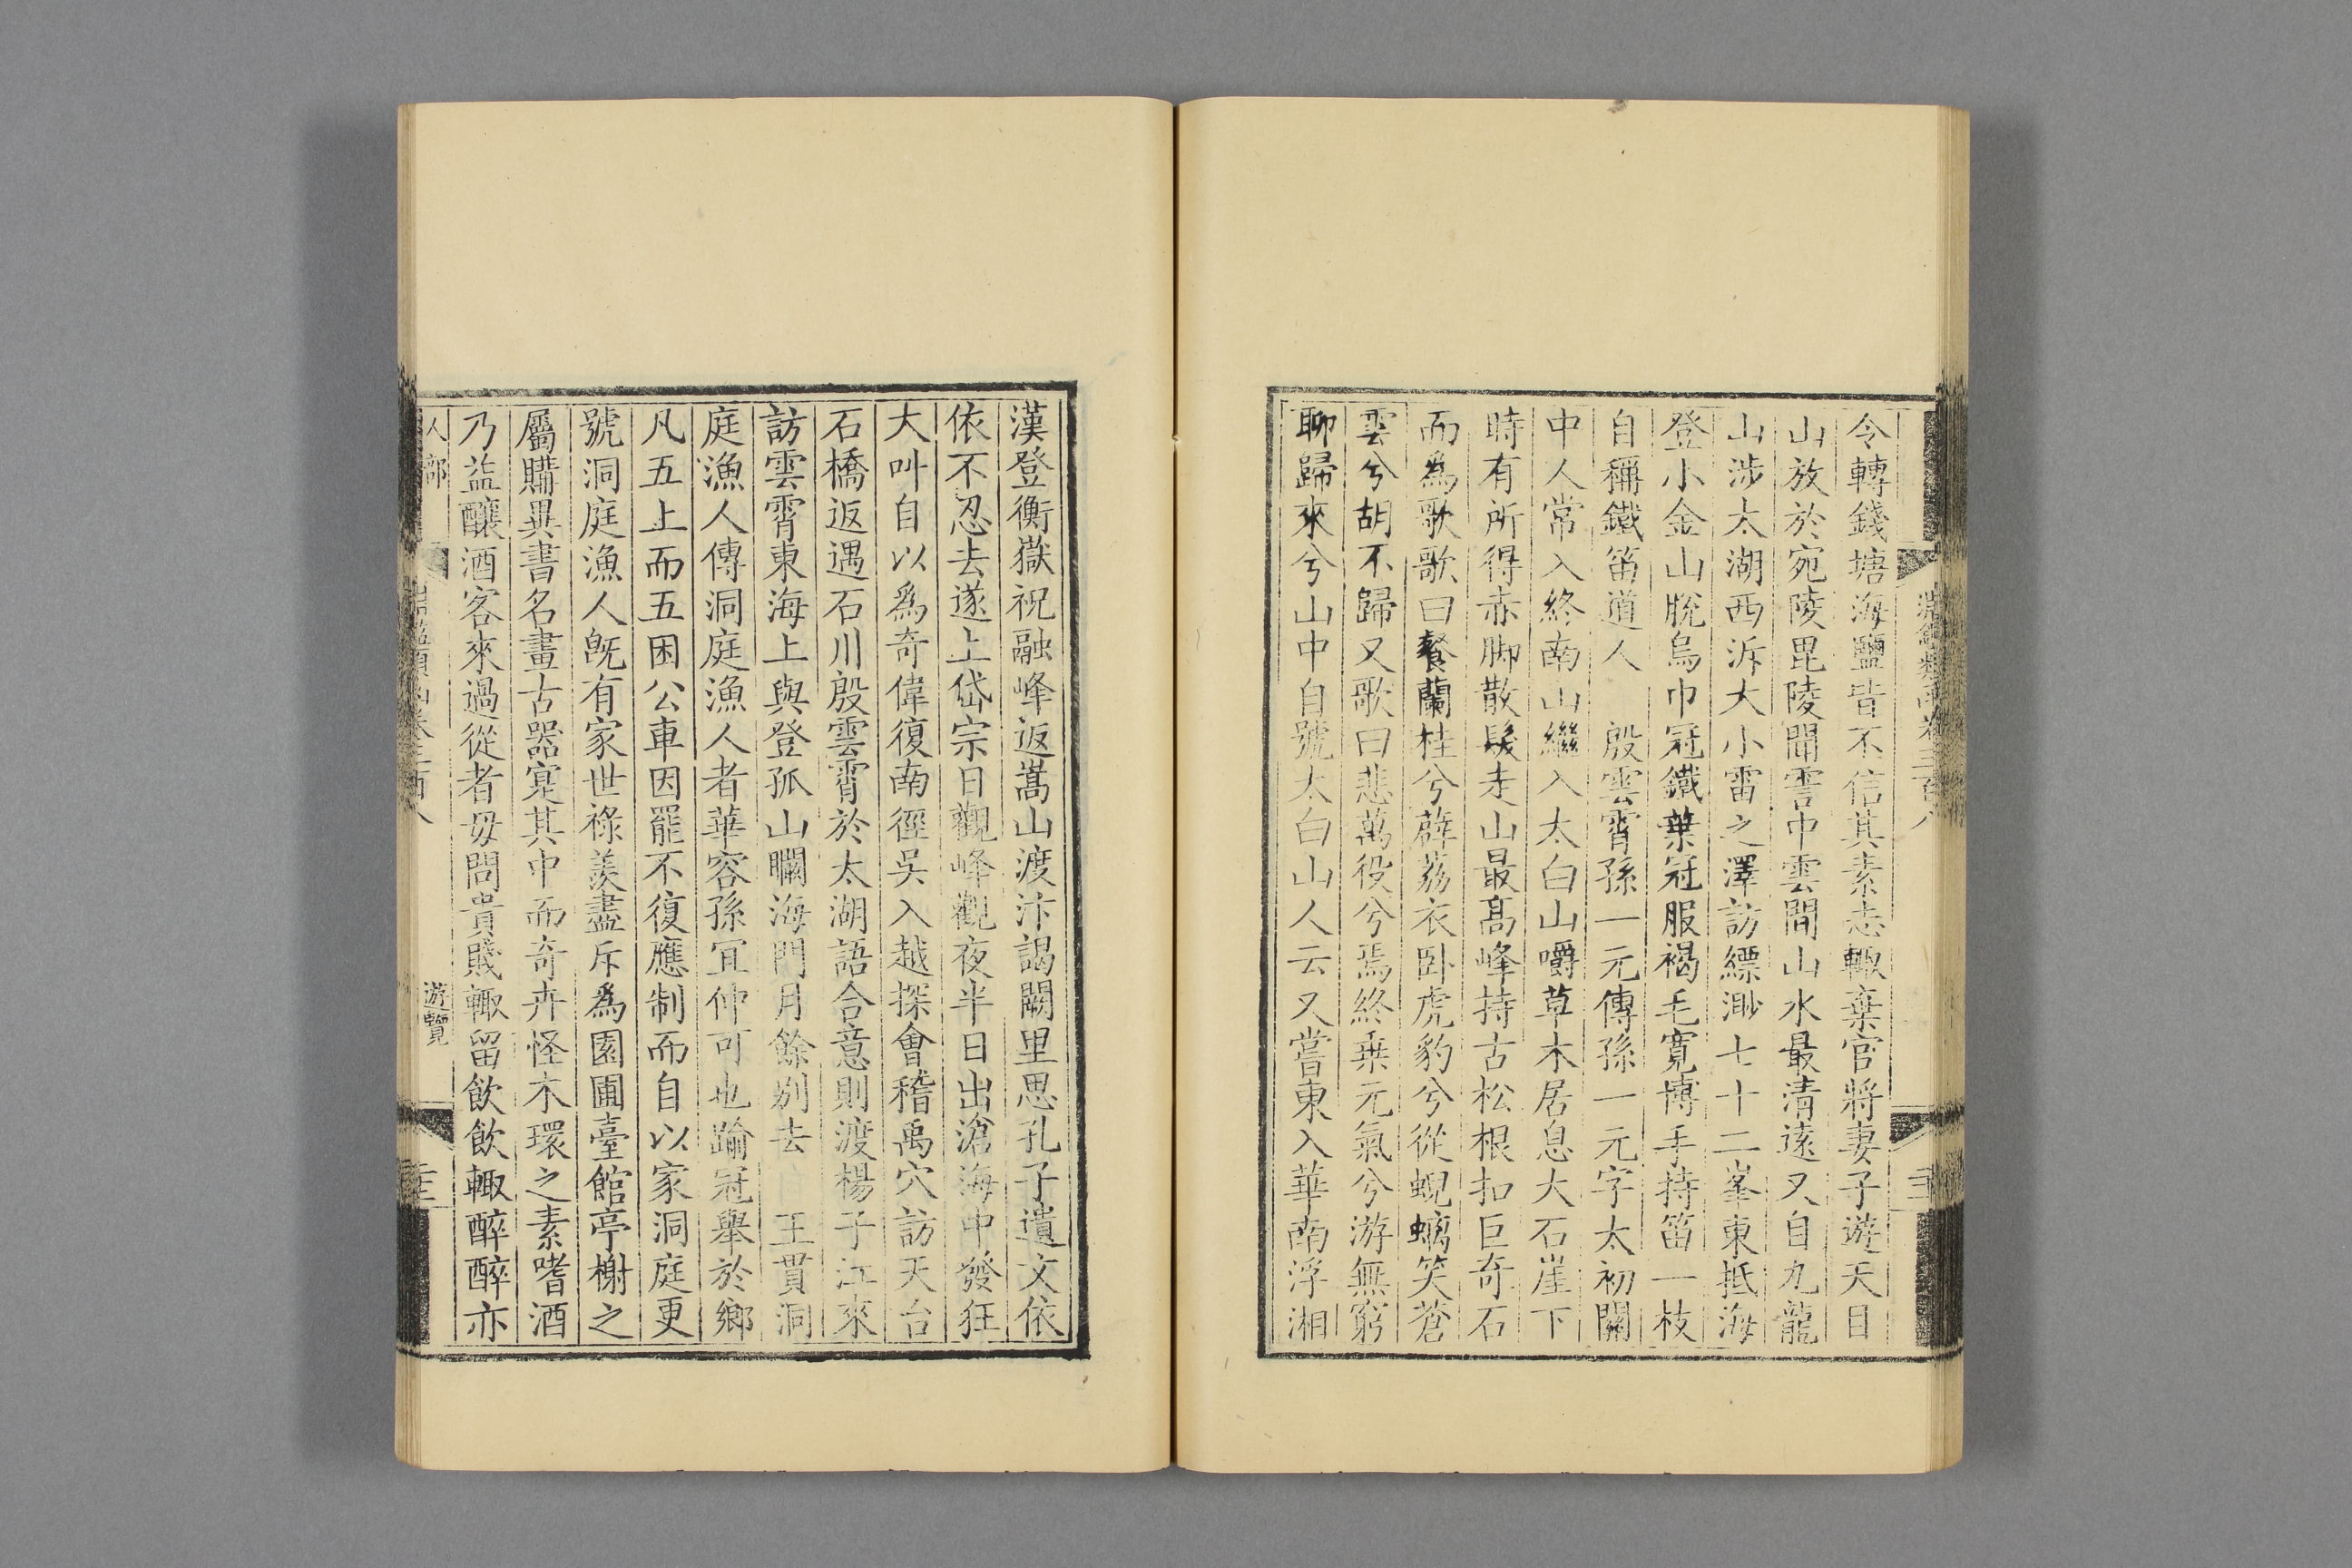 淵鑑類函卷三百八
令轉錢塘海鹽皆不信其素志輙棄官將妻子遊天目
山放於宛陵毘陵間雪中雲間山水最清遠又自九龍
山涉太湖西泝大小雷之澤訪縹渺七十二峯東抵海
登小金山脫烏巾冠鐵葉冠服褐毛寛博手持笛一枝
自稱鐵笛道人　殷雲霄孫一元傳孫一元字太初關
中人常入終南山繼入太白山嚼草木居息大石崖下
時有所得赤脚散髮走山最髙峰持古松根扣巨奇石
而爲歌歌曰餐蘭桂兮薜荔衣卧虎豹兮從蜺螭笑蒼
雲兮胡不歸又歌曰悲萬役兮焉終乗元氣兮游無窮
聊歸來兮山中自號太白山人云又嘗東入華南浮湘
漢登衡嶽祝融峰返嵩山渡汴謁闕里思孔子遺文依
依不忍去遂上岱宗日觀峰觀夜半日出滄海中發狂
大叫自以爲奇偉復南徑吳入越探㑹稽禹穴訪天台
石橋返遇石川殷雲霄於太湖語合意則渡楊子江來
訪雲霄東海上與登孤山矙海門月餘别去　王貫洞
庭漁人傳洞庭漁人者華容孫宜仲可也踰冠舉於鄉
凡五上而五困公車因罷不復應制而自以家洞庭更
號洞庭漁人旣有家世祿羨盡斥爲園圃臺館亭榭之
屬購異書名畫古器寔其中而奇卉怪木環之素嗜酒
乃益釀酒客來過從者毋問貴賤輙留飲飲輙醉醉亦
人部
淵鑑類函卷三百八
遊覽